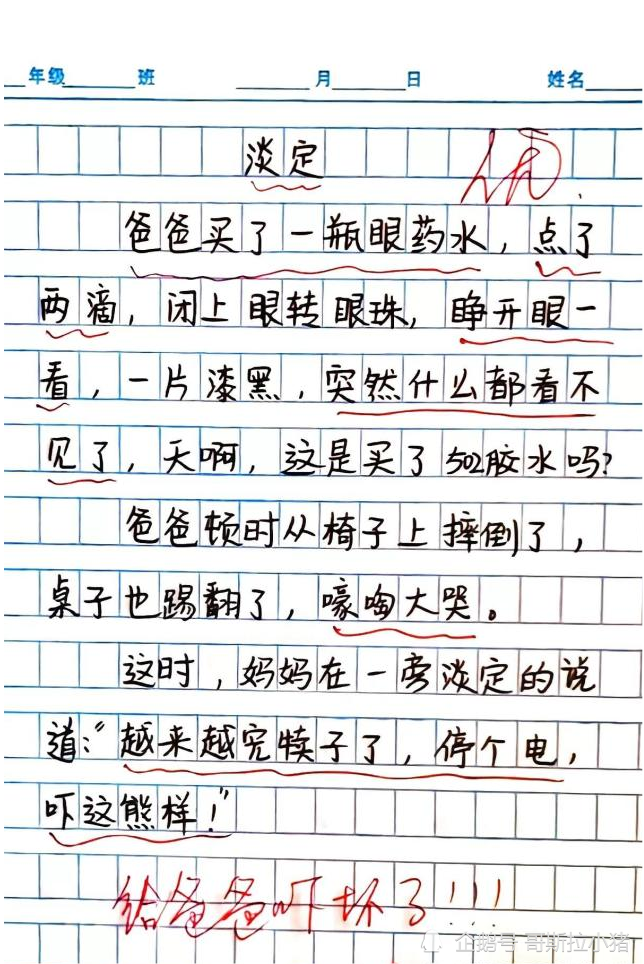 年级 班 月 日 姓名
淡定
优
爸爸买了一瓶眼药水，点了
两滴，闭上眼转眼珠，睁开眼一
看，一片漆黑，突然什么都看不
见了，天啊，这是买了502胶水吗？
爸爸顿时从椅子上摔倒了，
桌子也踢翻了，嚎啕大哭。
这时，妈妈在一旁淡定的说
道：“越来越完犊子了，停个电，
吓这熊样！”
给爸爸吓坏了！！！
企鹅号 哥斯拉小猪